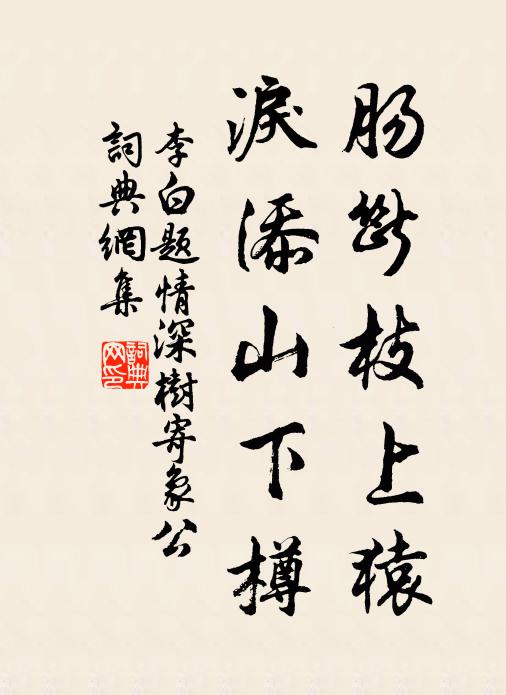 腸斷枝上猿
淚添山下樽
李白题情深樹寄象公
詞典網集
詞典網印